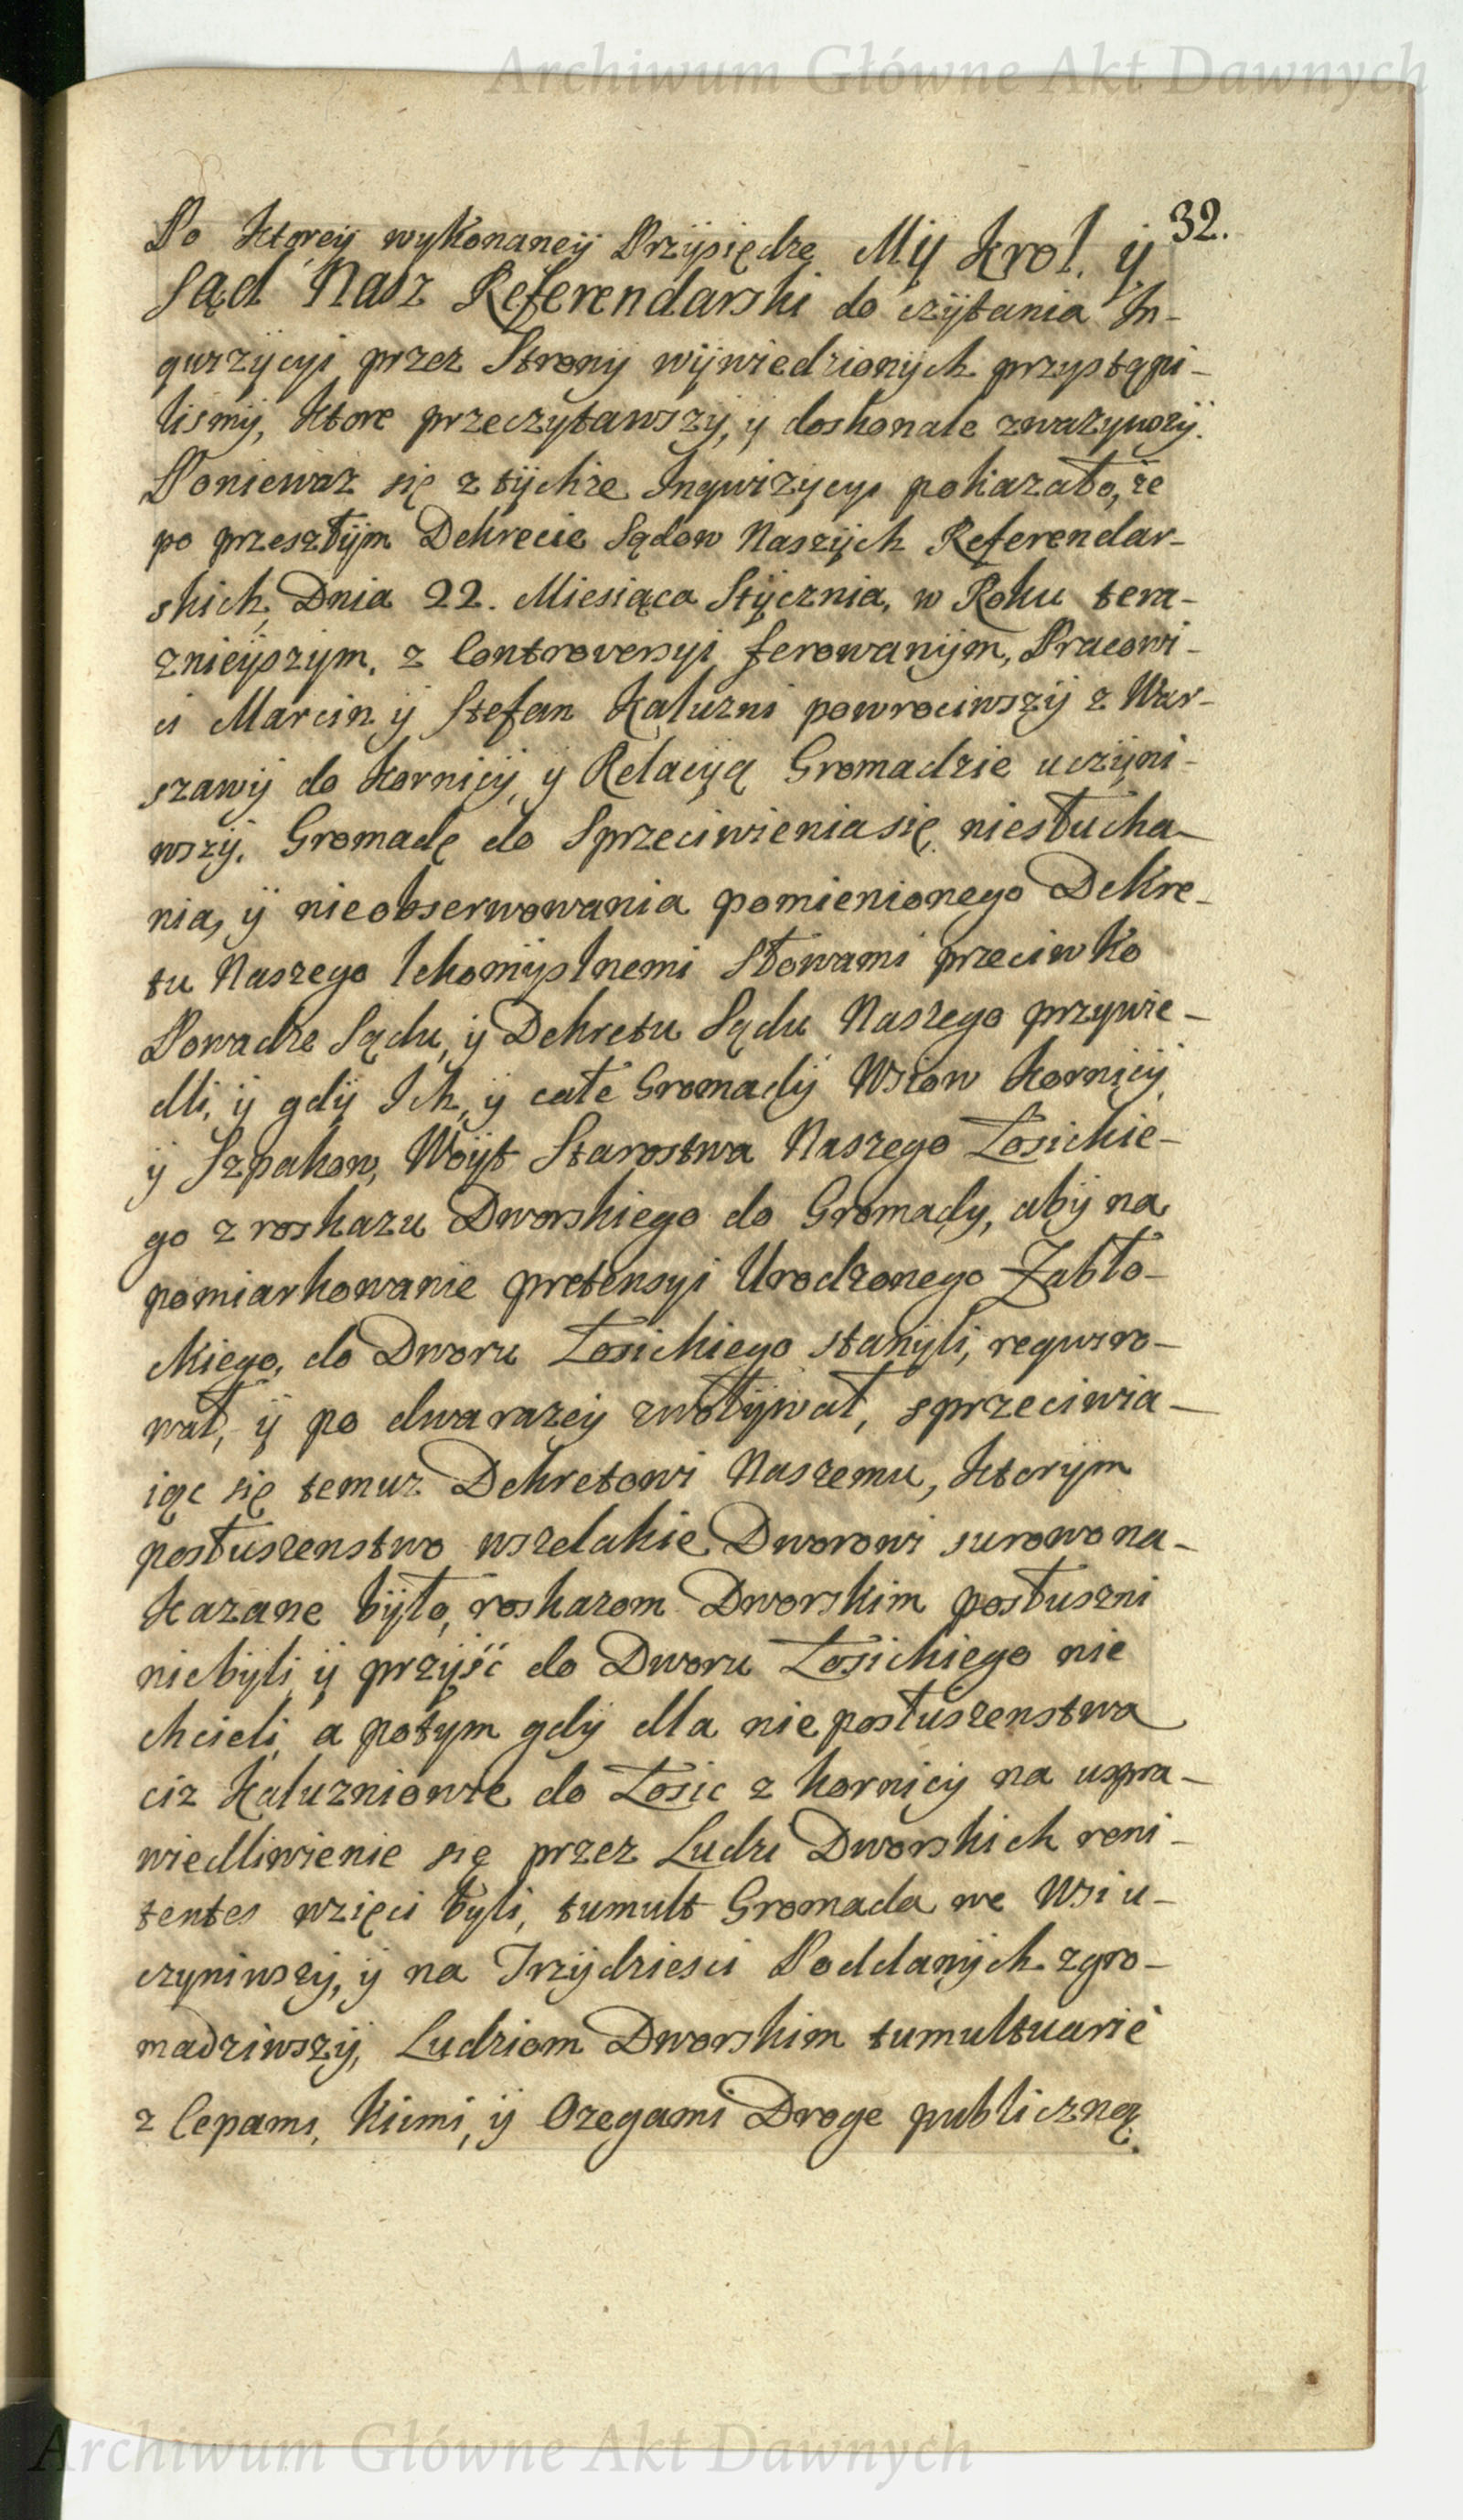 Archiwum Główne Akt Dawnych
32.
Po ktorey wykonaney Przysiędze My Krol. y
Sąd Nasz Referendarski do czytania In-
qwizycyi przez Strony wywiedzionych przystąpi-
liśmy, ktore przeczytawszy, y doskonale zważywszy.
Ponieważ się z tychże Inqwizycyi pokazało, że
po przeszłym Dekrecie Sądow Naszych Referendar-
skich, Dnia 22. Miesiąca Stycznia, w Roku tera-
znieyszym, z Controversyi ferowanym, Pracowi-
ci Marcin y Stefan Kaluzni powrociwszy z War-
szawy do Kornicy, y Relacyą Gromadzie uczyni-
wszy, Gromadę do Sprzeciwienia się, niesłucha-
nia, y nieobserwowania pomienionego Dekre-
tu Naszego lekomyslnemi Słowami przeciwko
Powadze Sądu, y Dekretu Sądu Naszego przywie-
dli, y gdy Ich, y całe Gromady Wsiow Kornicy,
y Szpakow, Woyt Starostwa Naszego Łosickie-
go z roskazu Dworskiego do Gromady, aby na
pomiarkowanie pretensyi Urodzonego Zabło-
ckiego, do Dworu Łosickiego stanyli, requiro-
wał, y po dwa razy zwoływał, sprzeciwia-
iąc się temuz Dekretowi Naszemu, ktorym
posłuszenstwo wszelakie Dworowi surowo na-
kazane było, roskazom Dworskim posłuszni
niebyli, y przyść do Dworu Łosickiego nie
chcieli, a potym gdy dla nieposłuszenstwa
ciz Kaluzniowie do Łosic z Kornicy na uspra-
wiedliwienie się przez Ludzi Dworskich reni-
tentes wzięci byli, tumult Gromada we Wsi u-
czyniwszy, y na Trzydziesci Poddanych zgro-
madziwszy, Ludziom Dworskim tumultuarie
z Cepami, Kiimi, y Ozegami Droge publiczną
Archiwum Główne Akt Dawnych